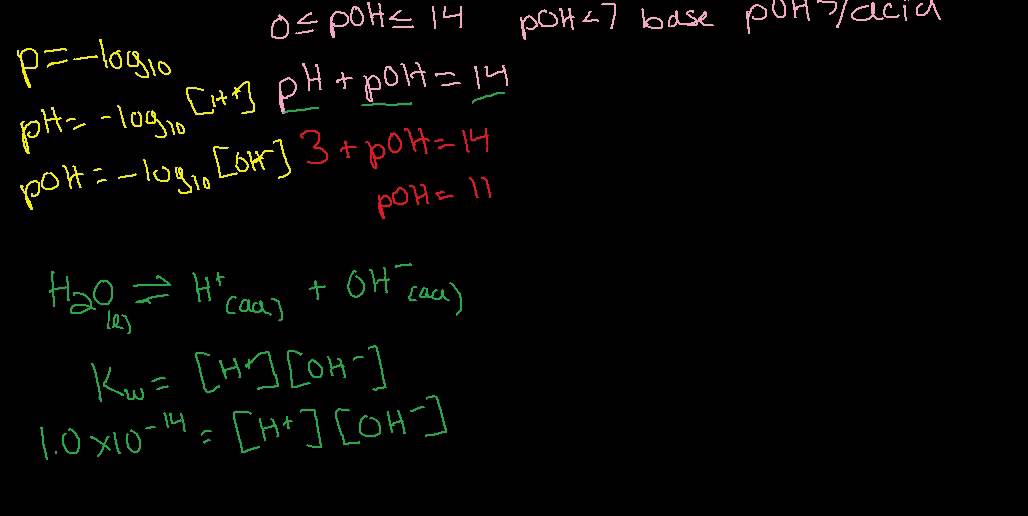 0 ≤ pOH ≤ 14 pOH < 7 base pOH > 7 acid
p = -log10
pH = -log10 [H+]
pOH = -log10 [OH-]
pH + pOH = 14
3 + pOH = 14
pOH = 11
H2O(l) ⇌ H+(aq) + OH-(aq)
Kw = [H+][OH-]
1.0 x 10^-14 = [H+][OH-]